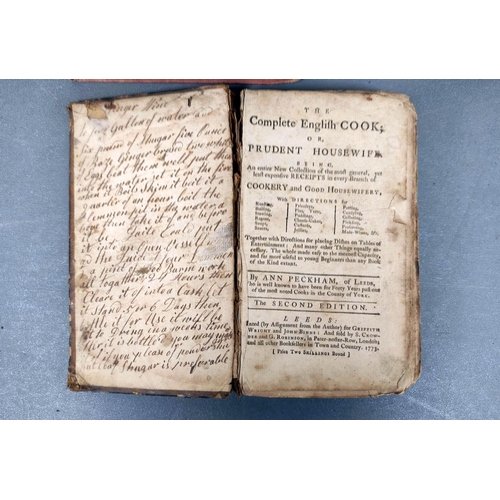 Ginger Wine
Gallon of water and
six pound of Shugar five ounce
Raze Ginger
Eggs beat them well put
water set it on the fire
when the Water Skim it boil it a
quarter of an hour boil the
Lemmon pills in the water a
then take it of
Quite Could put
it into an Open Vessel
the Juice four Lemons
a pint of New Barm work
all together 24 Hours then
Cleare it of into a Cask let
it Stand 5 or 6 Days then
it for Use it will be
fit Drinking in a weeks time
after it is bottled you may
if you please of powder
Shugar is preferable
THE
Complete Engliſh COOK;
OR,
PRUDENT HOUSEWIFE.
BEING,
An entire New Collection of the moſt general, yet
leaſt expenſive RECEIPTS in every Branch of
COOKERY and GOOD HOUSEWIFERY,
With DIRECTIONS for
Roaſting, Fricaſeys, Potting,
Boiling, Pies, Tarts, Candying,
Stewing, Puddings, Collaring,
Cheeſe-Cakes, Pickling,
Soups, Cuſtards, Preſerving,
Sauces, Jellies, Made-Wines, &c.
Together with Directions for placing Diſhes on Tables of
Entertainment: And many other Things equally ne-
ceſſary. The whole made eaſy to the meaneſt Capacity,
and far more uſeful to young Beginners than any Book
of the Kind extant.
By ANN PECKHAM, of LEEDS,
Who is well known to have been for Forty Years paſt one
of the moſt noted Cooks in the County of YORK.
The SECOND EDITION.
LEEDS:
Printed (by Aſſignment from the Author) for GRIFFITH
WRIGHT and JOHN BINNS: And ſold by S. CROW-
DER and G. ROBINSON, in Pater-noſter-Row, London;
and all other Bookſellers in Town and Country. 1773.
[ Price Two SHILLINGS Bound ]